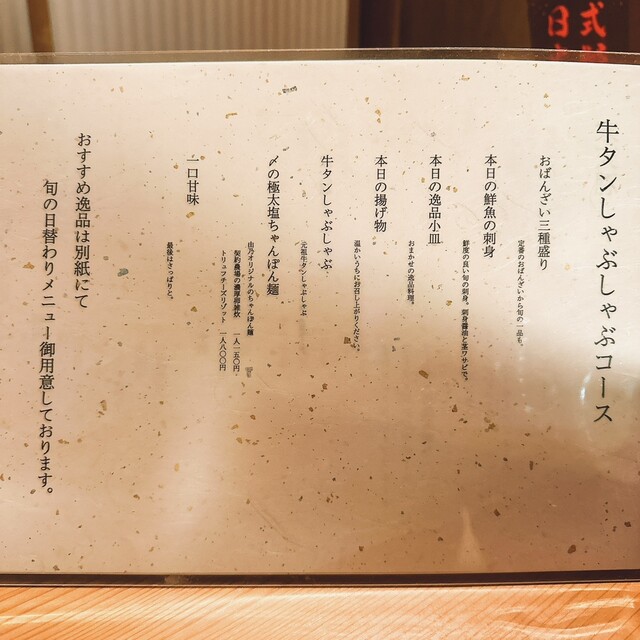 牛タンしゃぶしゃぶコース
おばんざい三種盛り
定番のおばんざいから旬の一品も。
本日の鮮魚の刺身
鮮度の良い旬の刺身。刺身醤油と茎ワサビで。
本日の逸品小皿
おまかせの逸品料理。
本日の揚げ物
温かいうちにお召し上がりください。
牛タンしゃぶしゃぶ
元祖牛タンしゃぶしゃぶ
〆の極太塩ちゃんぽん麺
山乃オリジナルのちゃんぽん麺
契約農場の濃厚卵雑炊 一人一五〇円
トリュフチーズリゾット 一人八〇〇円
一口甘味
最後はさっぱりと。
おすすめ逸品は別紙にて
旬の日替わりメニュー御用意しております。